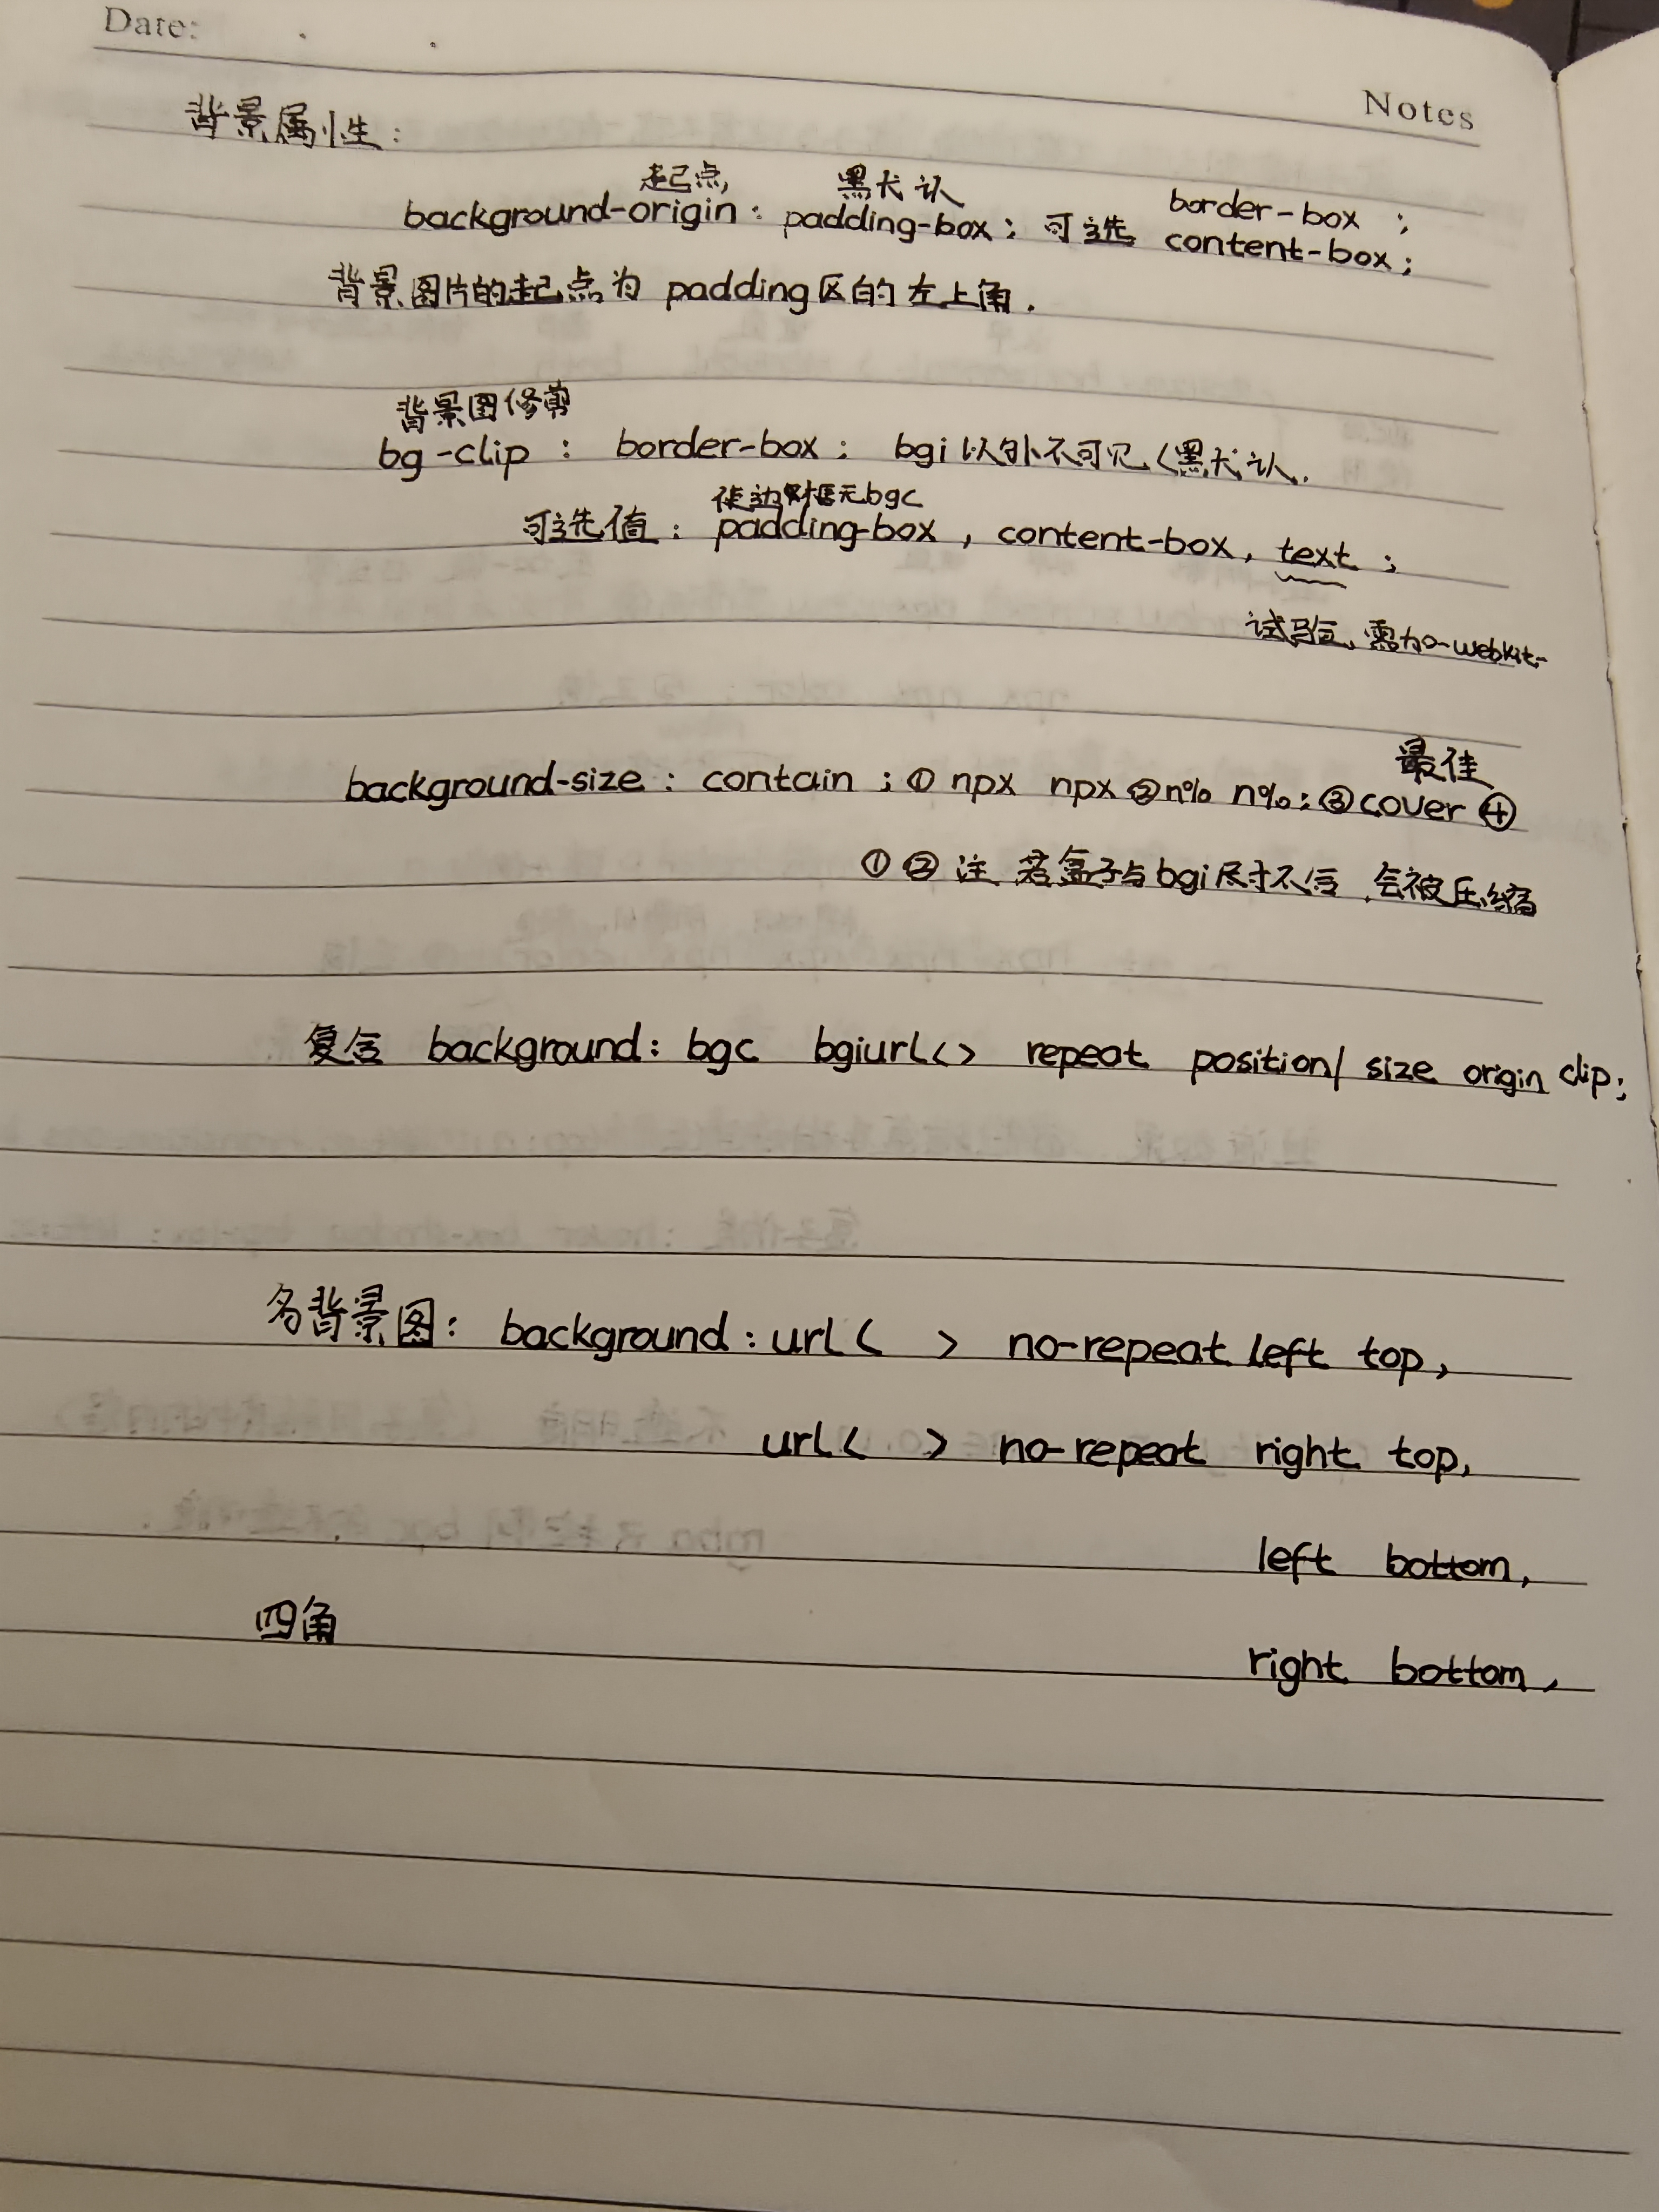 Date:
Notes
背景属性：
起点 默认 border-box ;
background-origin : padding-box ; 可选 content-box ;
背景图片的起点为 padding区的左上角.
背景图修剪
bg-clip : border-box ; bgi以外不可见(默认.
使边框无bgc
可选值 : padding-box , content-box, text ;
试验, 需加-webkit-
最佳
background-size : contain ; ① npx npx ② n% n% ; ③ cover ④
①② 注 若盒子与bgi尺寸不合 , 会被压缩
复合 background : bgc bgiurl() repeat position/ size origin clip;
多背景图 : background : url ( ) no-repeat left top ,
url ( ) no-repeat right top,
left bottom,
四角
right bottom ,